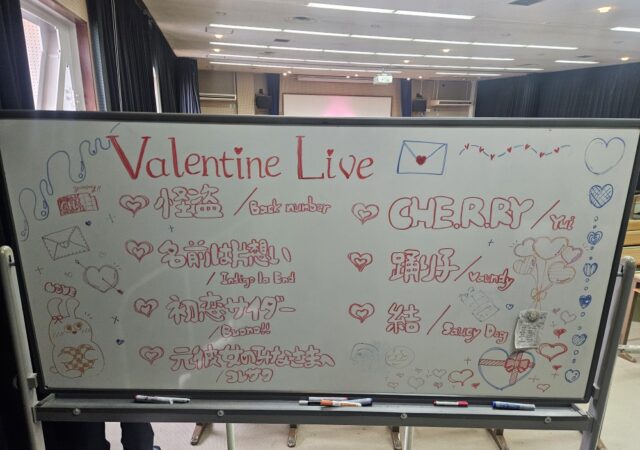 Valentine Live
怪盗 / Back number
名前は片想い / Indigo la End
初恋サイダー / Buono!!
元彼女のみなさまへ / コレサワ
CHE.R.RY / Yui
踊り子 / Vaundy
結 / Saucy Dog